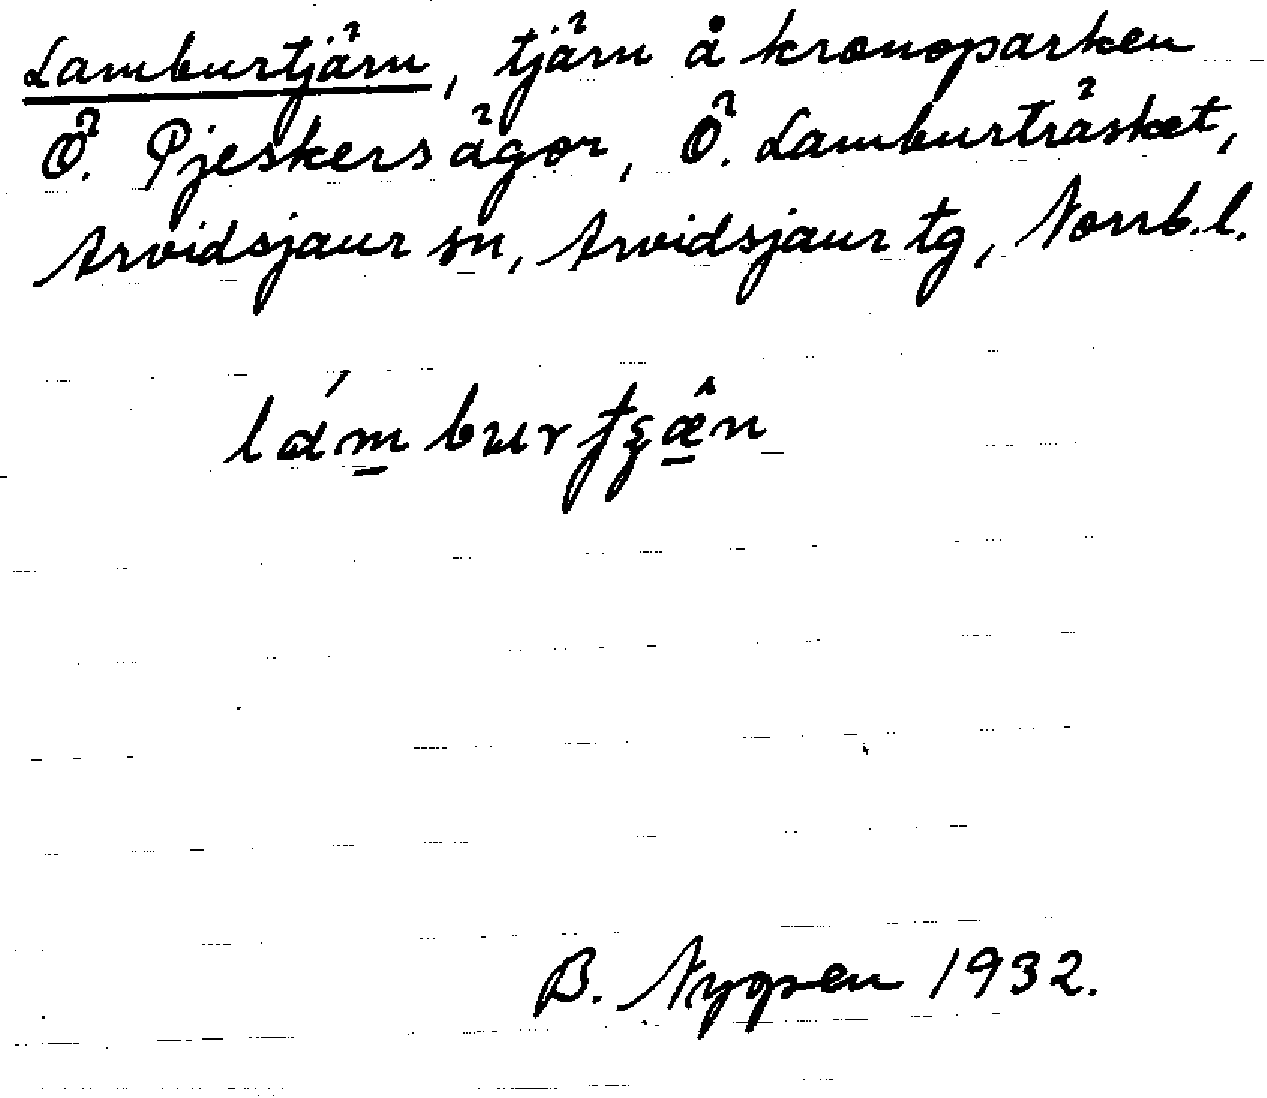 Lamburtjärn, tjärn å kronoparken
Ö. Pjeskersägor, Ö. Lamburträsket,
Arvidsjaur sn, Arvidsjaur tg, Norrb.l.
B. Nygren 1932.